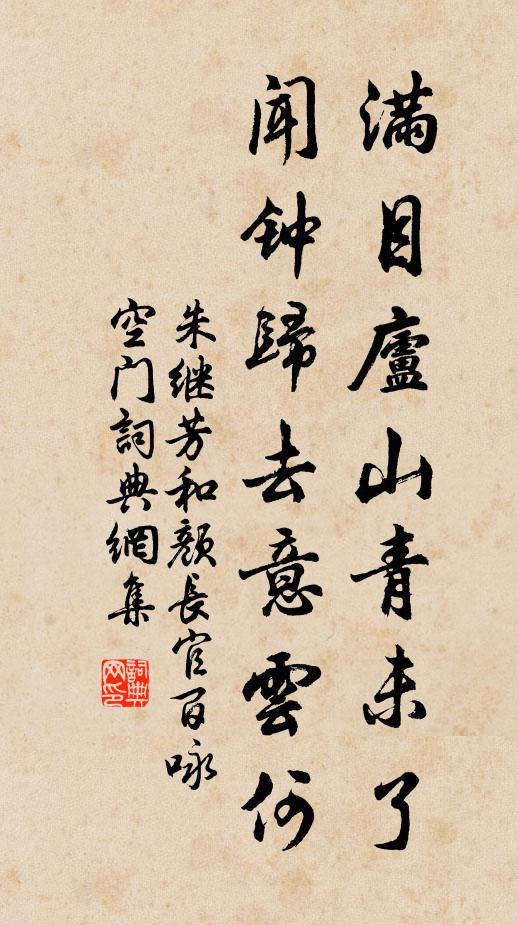 满目廬山青未了
闻钟歸去意雲何
朱继芳和顏長官百咏
空门詞典網集
詞典网印